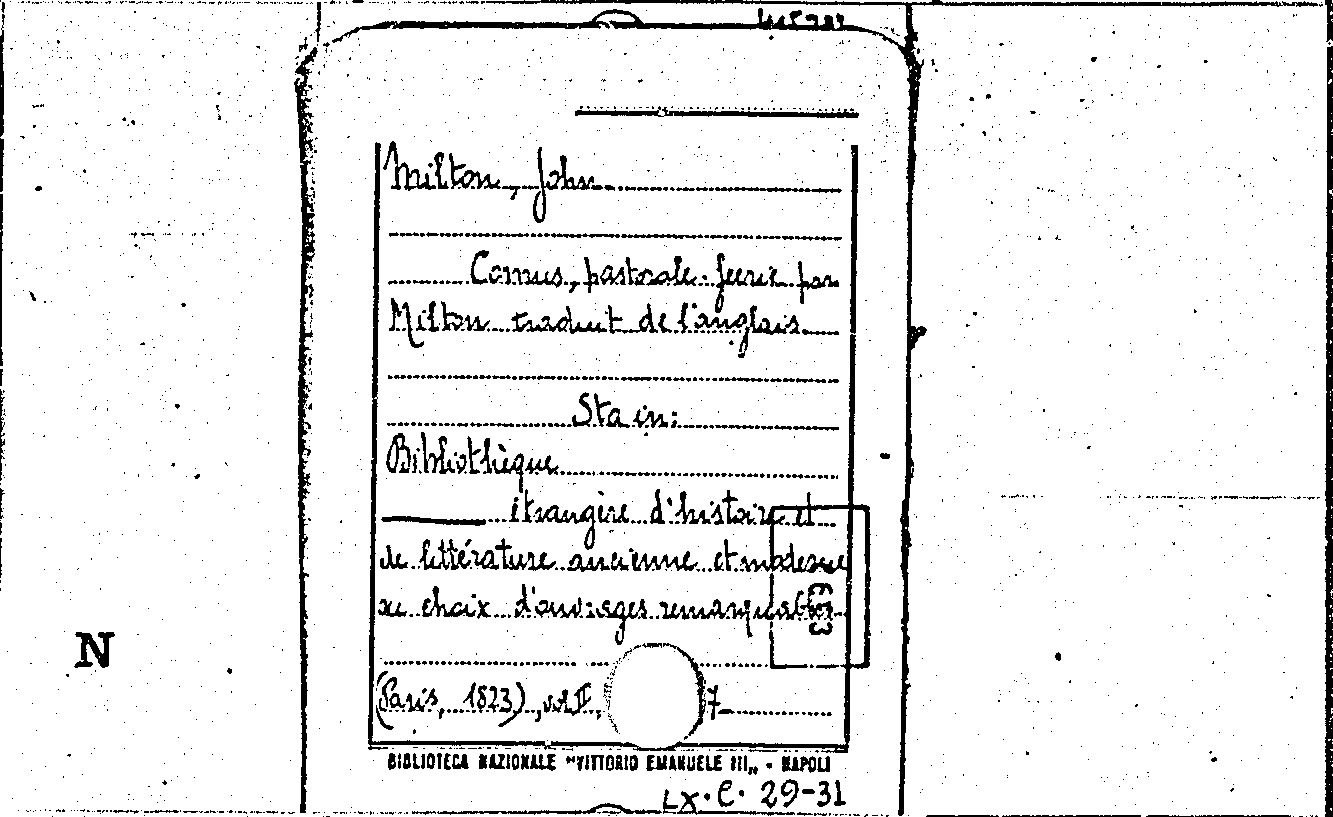 Milton, John
Comus, pastorale-feerie par
Milton traduit de l'anglais
Sta in:
Bibliothèque
étrangère d'histoire et
de littérature ancienne et moderne
ou choix d'ouvrages remarquables
(Paris, 1823), vol II, 7
BIBLIOTECA NAZIONALE "VITTORIO EMANUELE III„ - NAPOLI
LX. C. 29-31
N